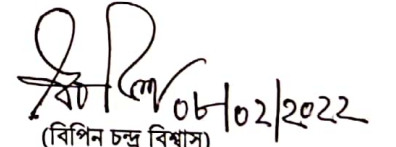 ০৮/০২/২০২২
(বিপিন চন্দ্র বিশ্বাস)